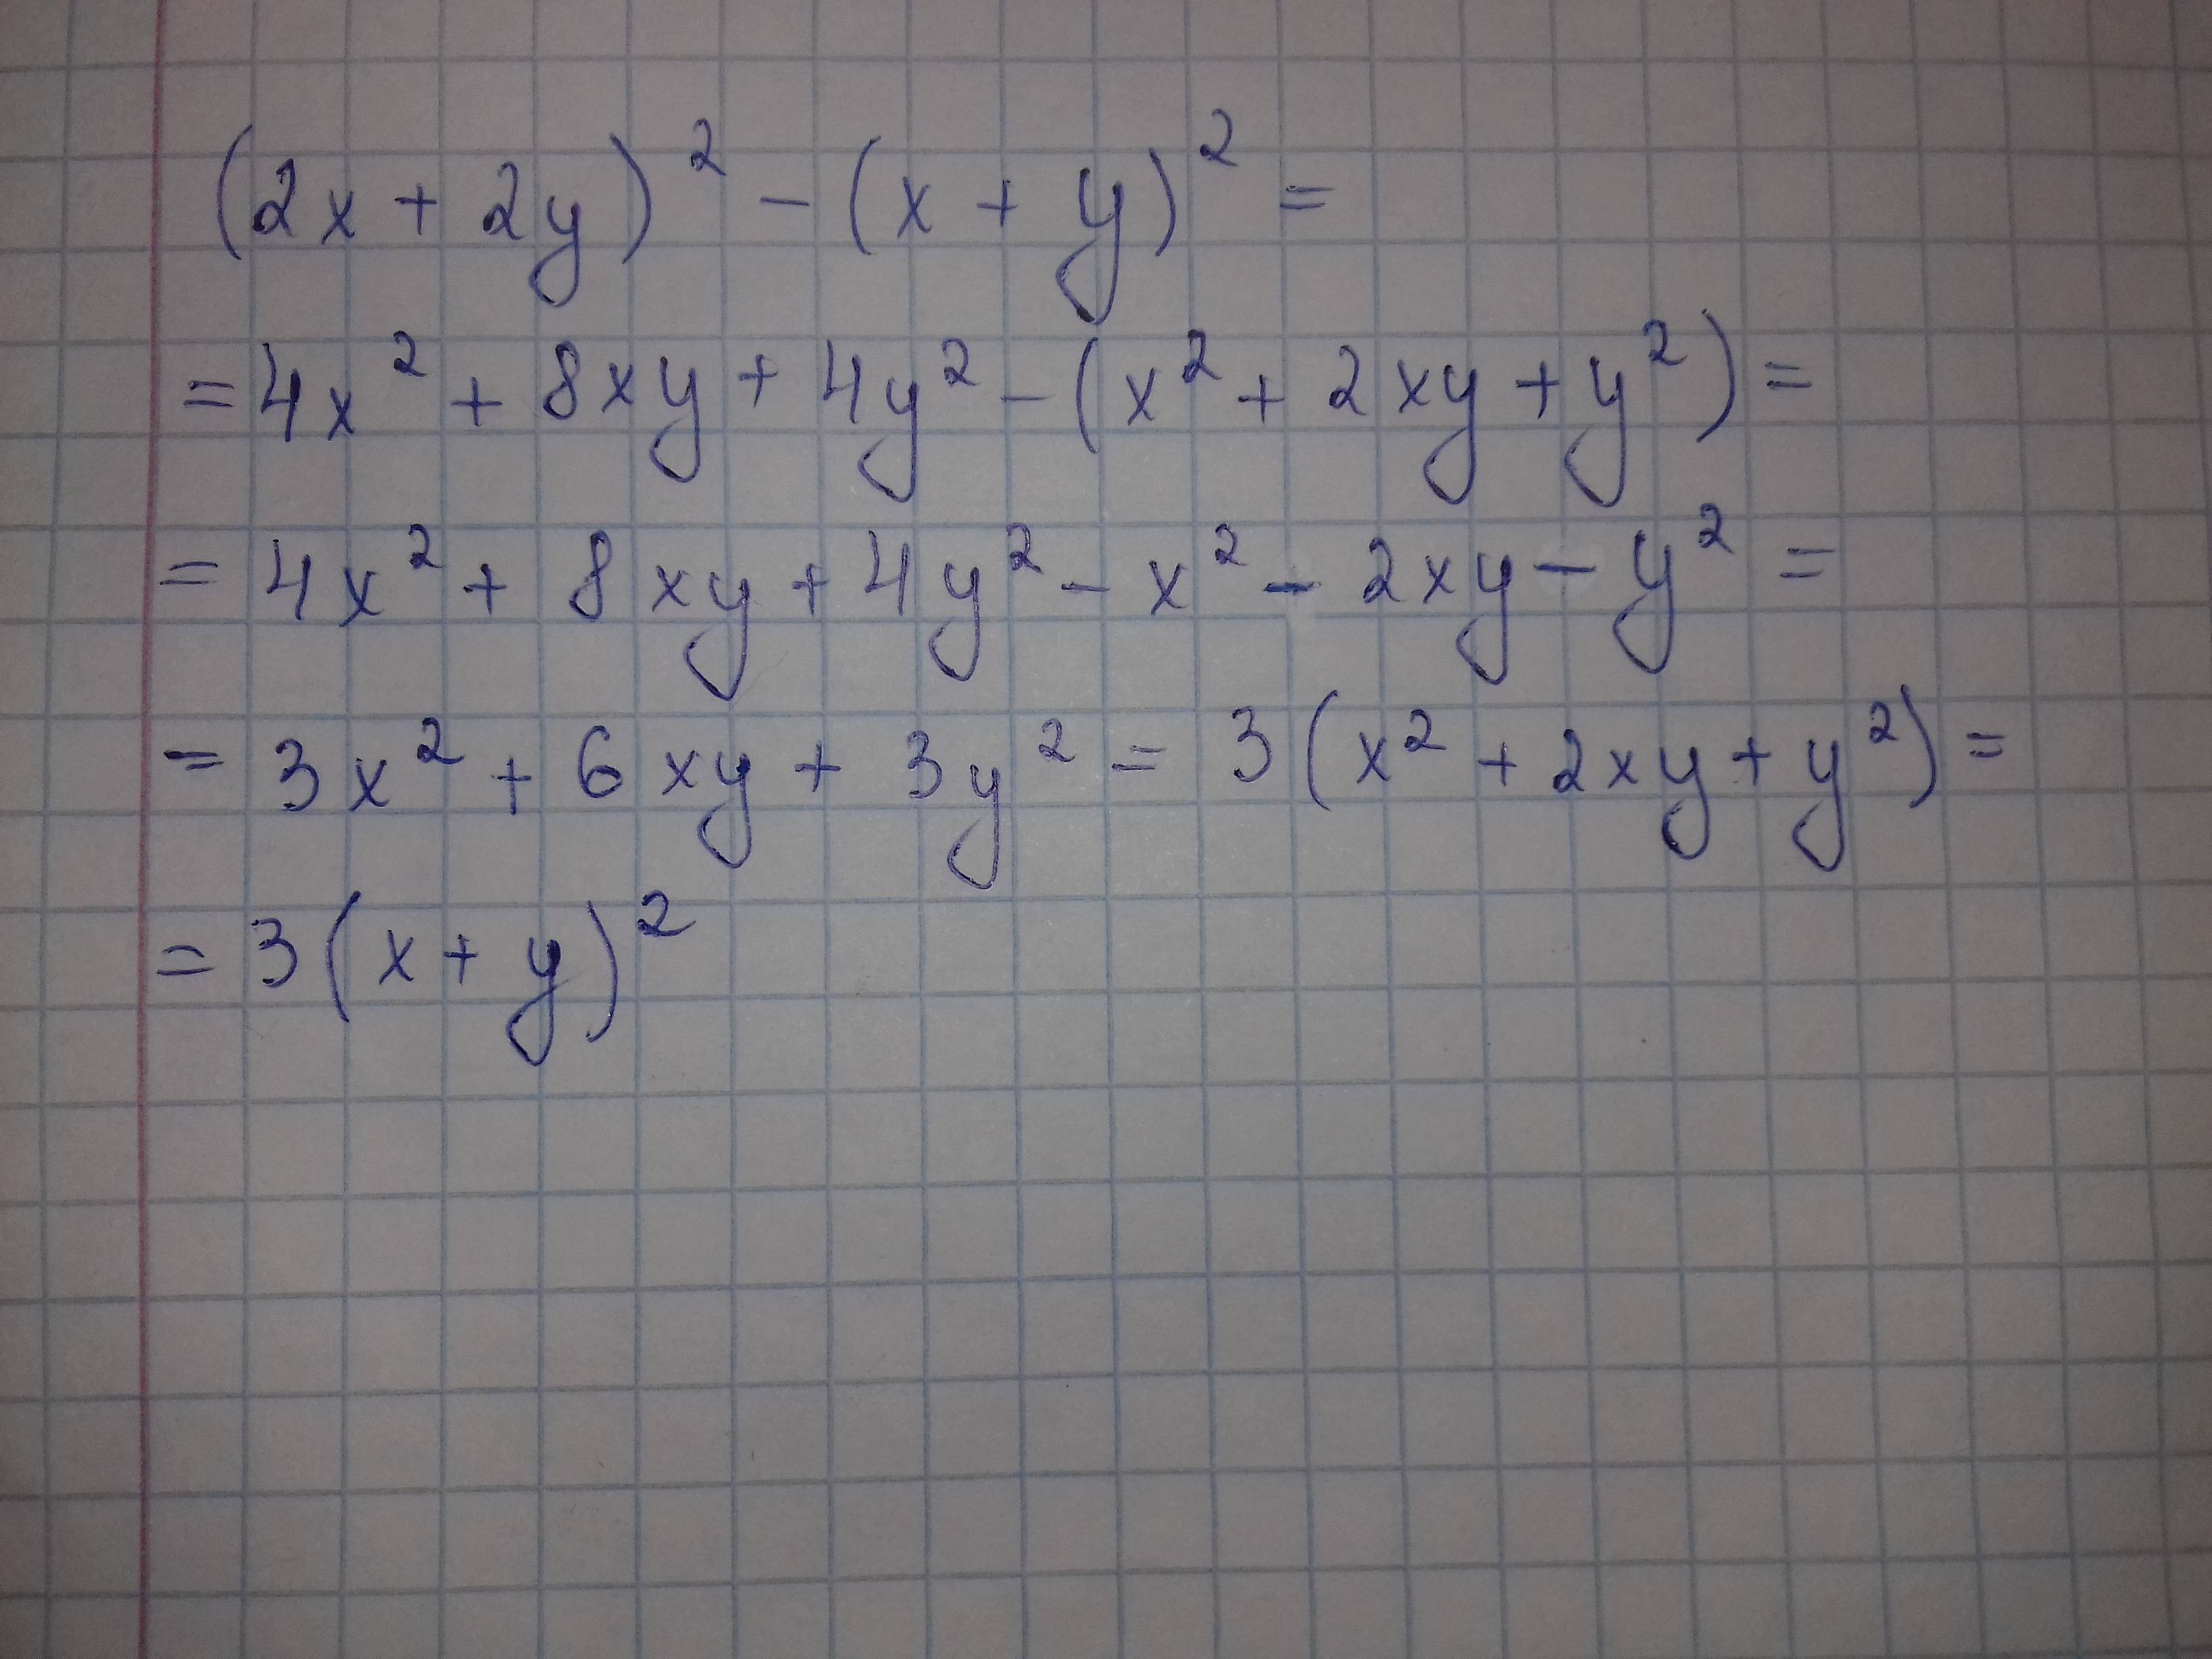 (2x + 2y)² - (x + y)² =
= 4x² + 8xy + 4y² - (x² + 2xy + y²) =
= 4x² + 8xy + 4y² - x² - 2xy - y² =
= 3x² + 6xy + 3y² = 3(x² + 2xy + y²) =
= 3(x + y)²